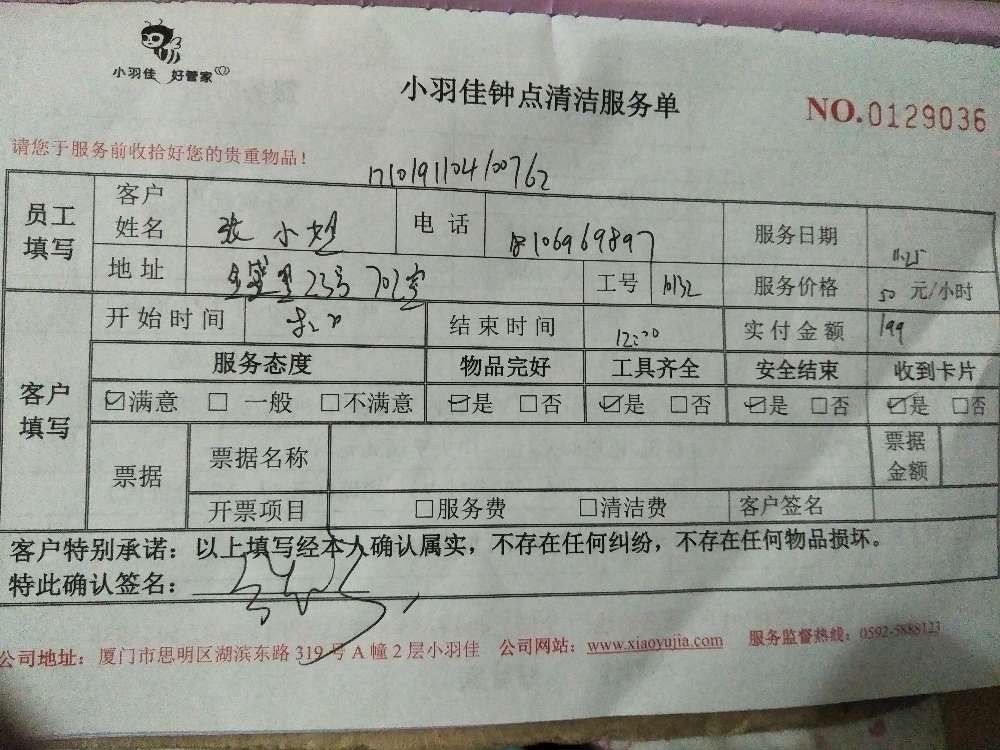 小羽佳 好管家
小羽佳钟点清洁服务单
NO.0129036
请您于服务前收拾好您的贵重物品！
1710191104100762
员工填写 客户姓名 张小妙 电话 18106969897 服务日期 11.25
地址 里23号702室 工号 10132 服务价格 50 元/小时
客户填写 开始时间 结束时间 12:00 实付金额 199
服务态度 物品完好 工具齐全 安全结束 收到卡片
☑满意 □一般 □不满意 ☑是 □否 ☑是 □否 ☑是 □否 ☑是 □否
票据 票据名称 票据金额
开票项目 □服务费 □清洁费 客户签名
客户特别承诺：以上填写经本人确认属实，不存在任何纠纷，不存在任何物品损坏。
特此确认签名：
公司地址：厦门市思明区湖滨东路319号A幢2层小羽佳 公司网站：www.xiaoyujia.com 服务监督热线：0592-5888123